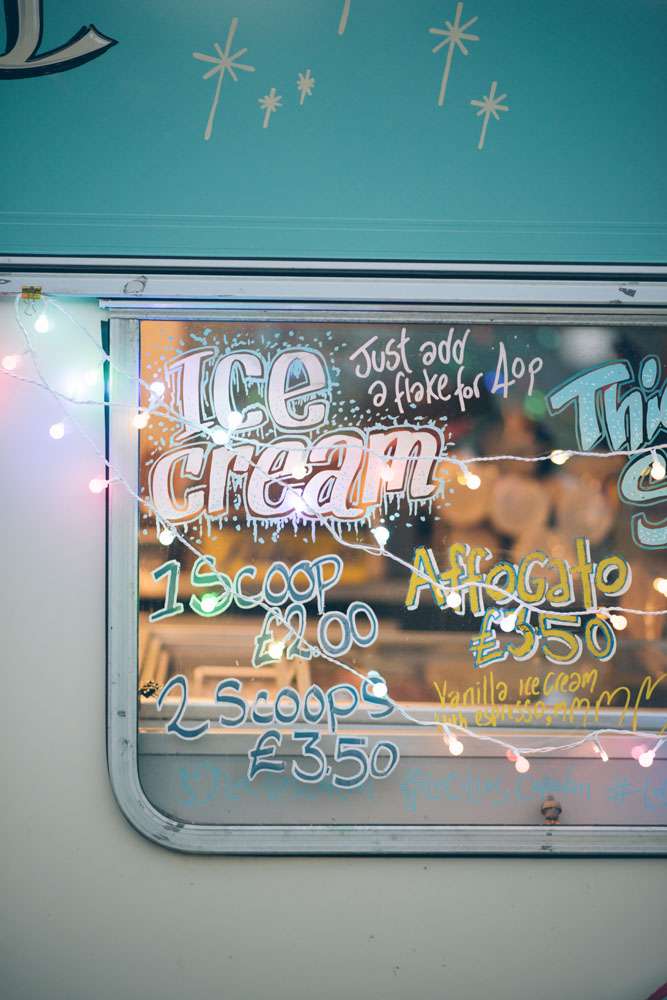 Ice
cream
Just add
a flake for 40p
Thi
S
1 Scoop
£2.00
2 Scoops
£3.50
Affogato
£3.50
Vanilla ice cream
with espresso, mmmmm